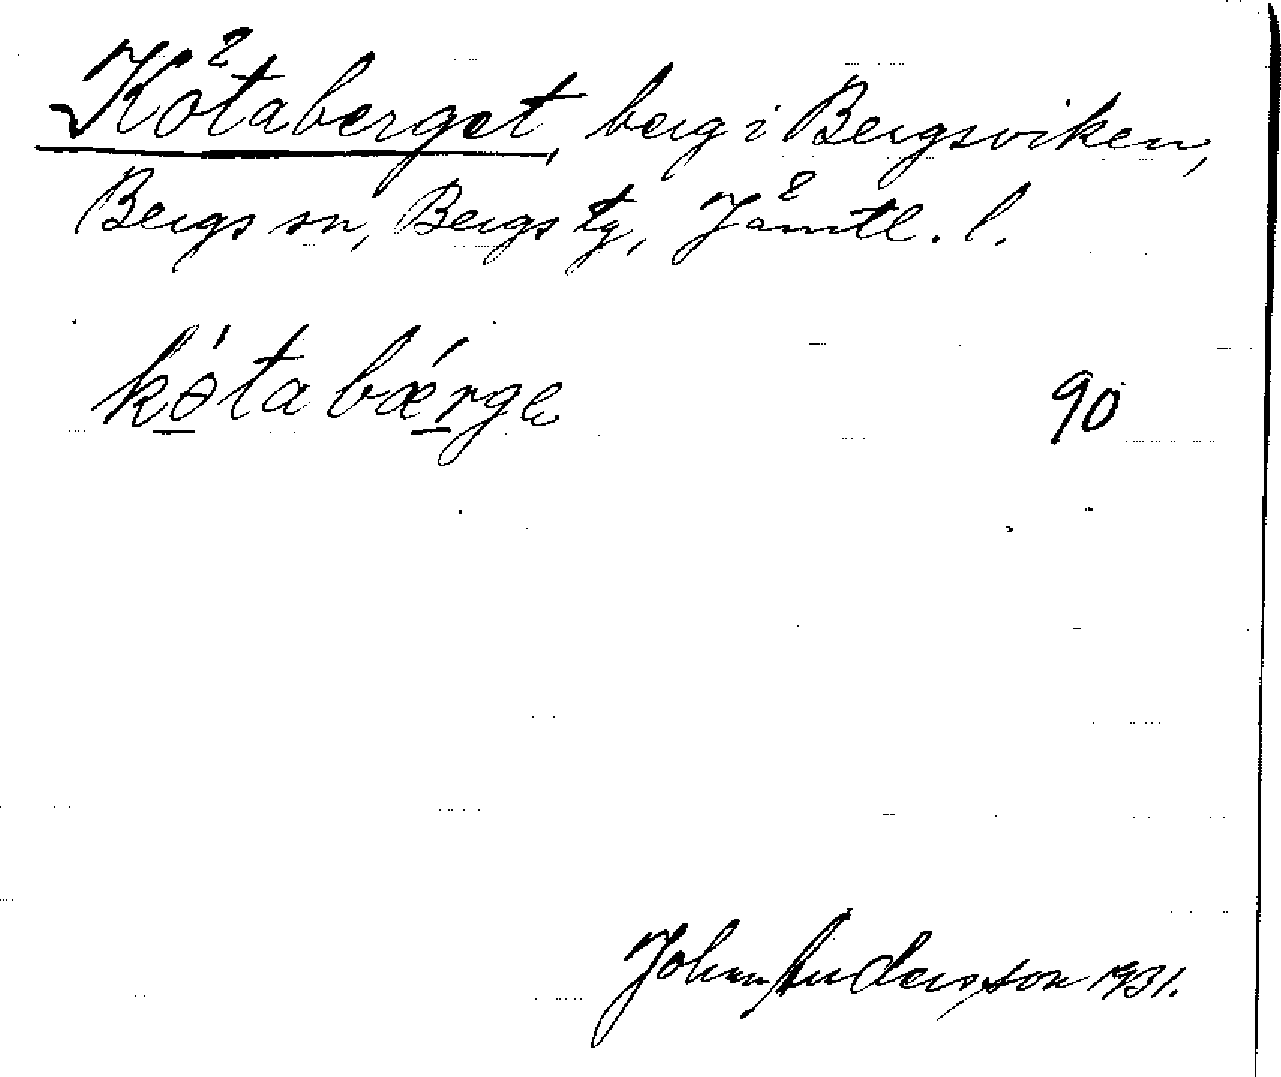 Kötaberget, berg i Bergsviken,
Bergs sn, Bergs tg, Jämtl. l.
kö́ta bǽrge 90
John Andersson 1931.